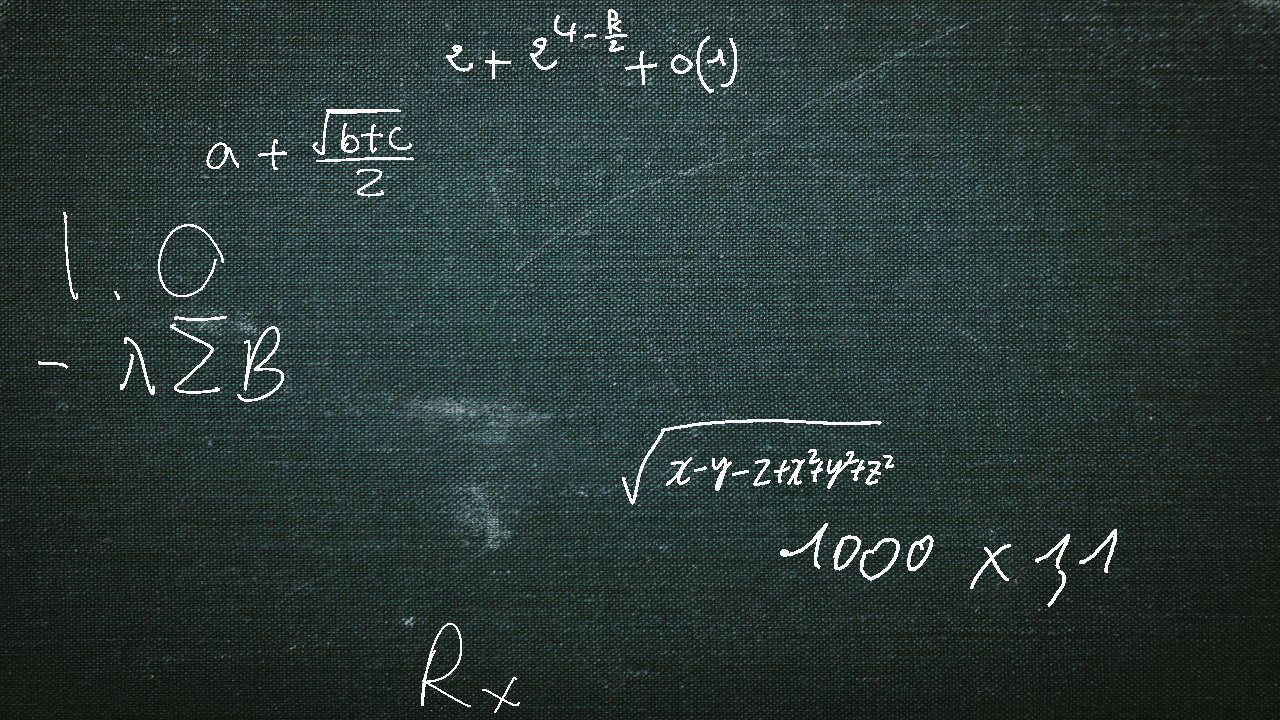 2 + 2^{4 - \frac{R}{2}} + o(1)
a + \frac{\sqrt{b+c}}{2}
1.0
- λ∑B
\sqrt{x-y-z+x^2+y^2+z^2}
1000 x 1,1
R_x